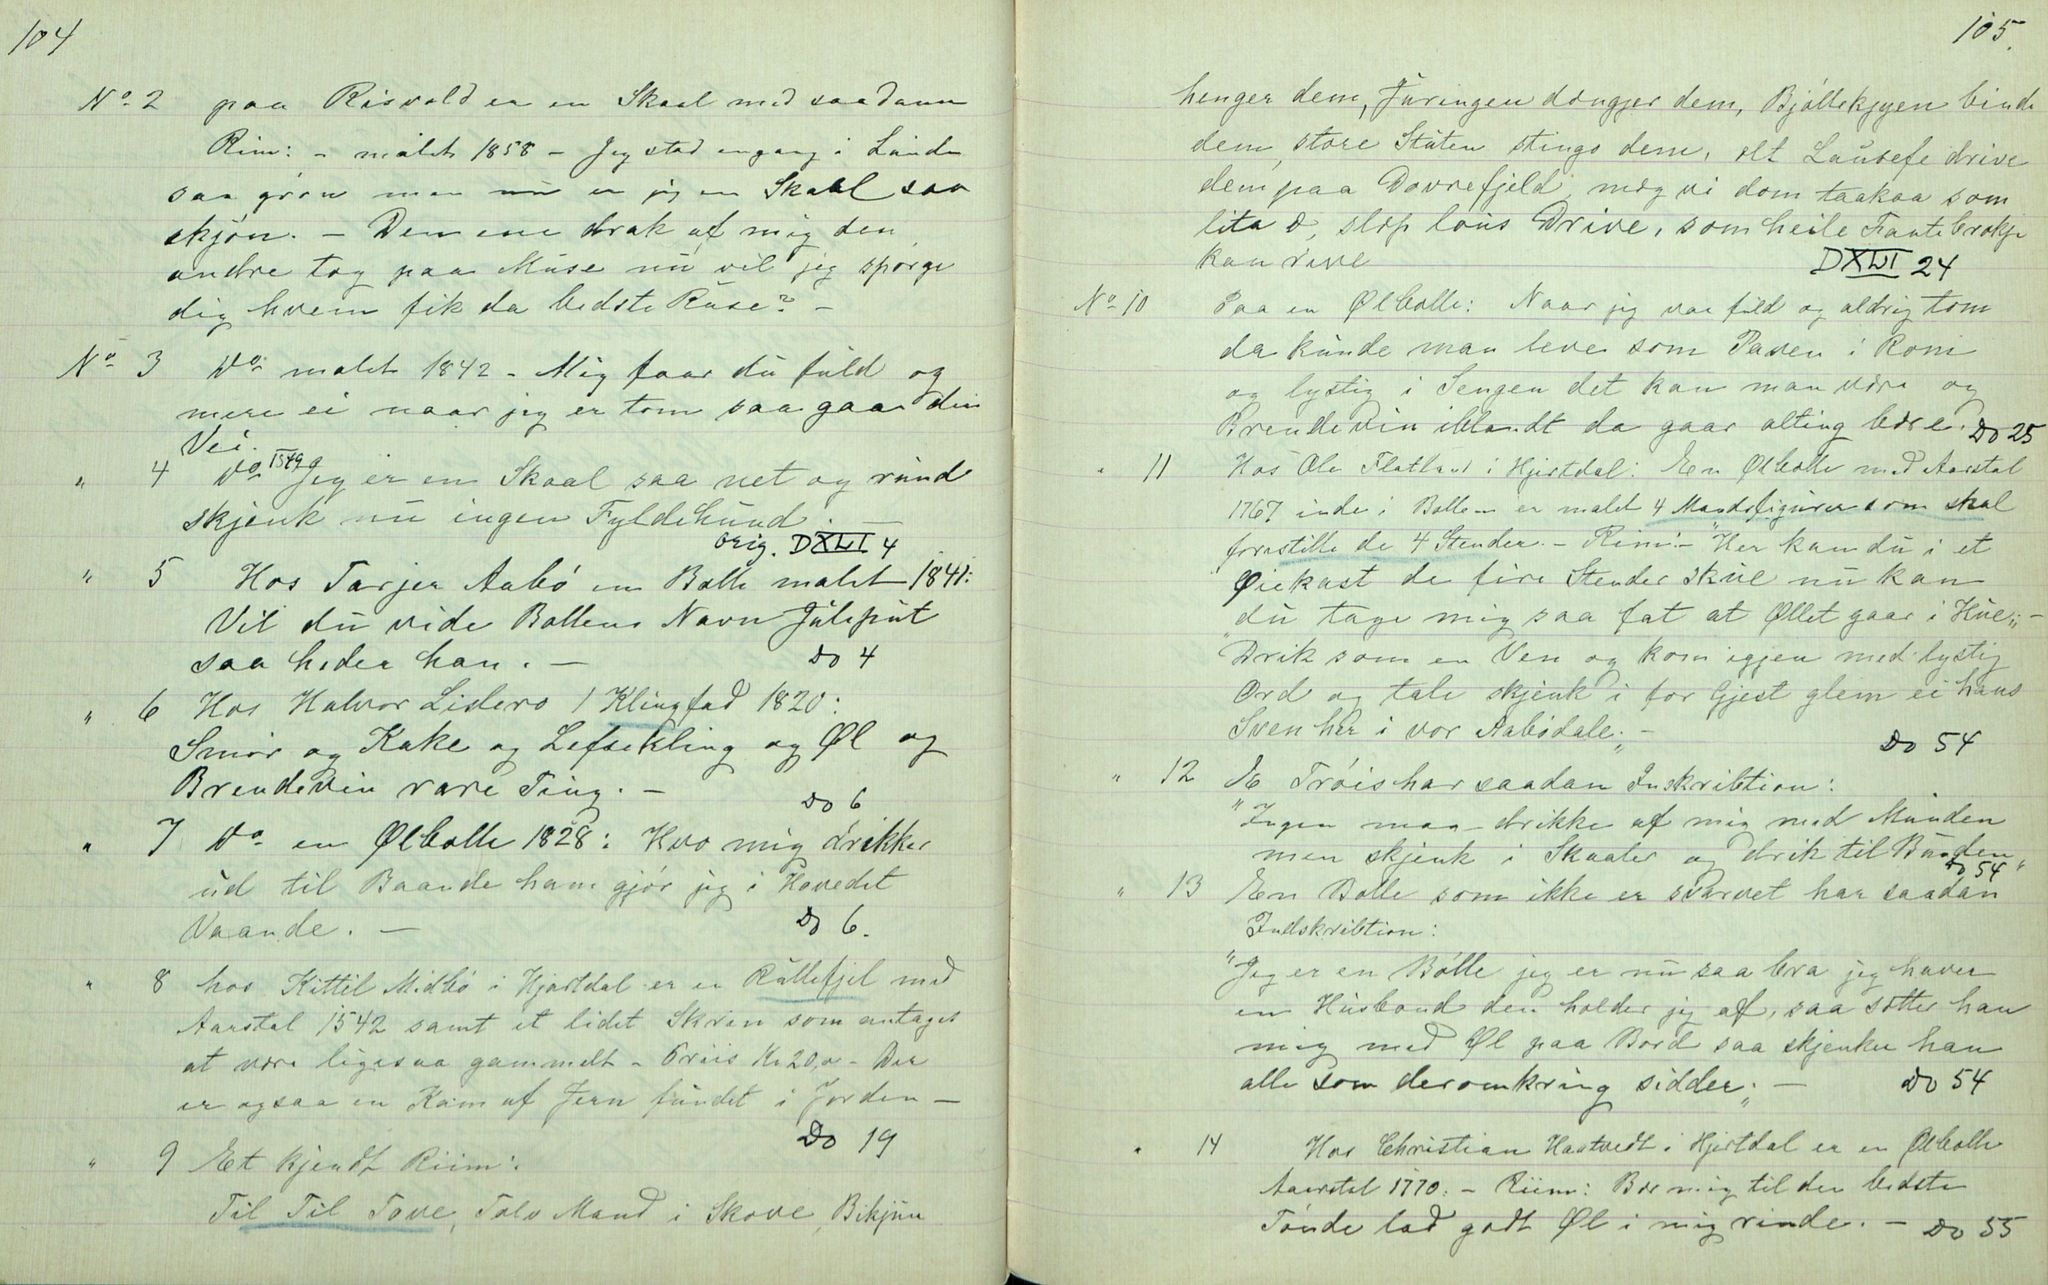 104
No 2 paa Risvold er en Skaal med saadann
Rim: - malet 1858 - Jeg stod engang i Lunde
saa grøn men nu er jeg en Skaal saa
skjøn. - Den ene drak af mig den
andre tog paa Muse nu vil jeg spørge
dig hvem fik da bedste Ruse? -
No 3 Do malet 1842 - Mig faar du fuld og
mere ei naar jeg er tom saa gaa din
Vei.
" 4 Do 1849 Jeg er en Skaal saa net og rund
skjenk nu ingen Fyldehund. -
orig. DXLI 4
" 5 Hos Tarjer Aabø en Bolle malet 1841:
Vil du vide Bollens Navn Juleput
saa heder han. - Do 4
" 6 Hos Halvor Lislero 1 Klingfad 1820:
Smør og Kake og Lefsekling og Øl og
Brendevin rare Ting. -
Do 6
" 7 Do en Ølbolle 1828: Hvo mig drikker
ud til Baande ham gjør jeg i Hovedet
Vaande. - Do 6.
" 8 hos Kittil Midbø i Hjartdal er en Rullefjel med
Aarstal 1542 samt et lidet Skrin som antages
at være ligesaa gammelt - Priis Kr 20,00 - Der
er ogsaa en Kam af Jern fundet i Jorden -
Do 19
" 9 Et kjendt Riim:
Til Til Tove, Tolv Mand i Skove, Bikjun
105.
henger dem, Juringen dængjer dem, Bjøllekjyen binde
dem, store Stuten stinge dem, alt Lausefe drive
dem paa Dovrefjeld, mæg vi dom taakaa som
lita d, slæp lous Drive, som heile Fantebrokje
kan rive DXLI 24
No 10 Paa en Ølbolle: Naar jeg var fuld og aldrig tom
da kunde man leve som Paven i Rom
og lystig i Sengen det kan man være og
Brendevin iblandt da gaar alting bære. Do 25
" 11 Hos Ole Flatland i Hjertdal: En Ølbolle med Aarstal
1767 inde i Bollen er malet 4 Mandsfigurer som skal
forestille de 4 Stender. - Rim: - "Her kan du i et
Øiekast de fire Stender skue nu kan
du tage mig saa fat at Øllet gaar i Hue" -
"Drik som en Ven og kom igjen med lystig
Ord og tale skjenk i for Gjest glem ei hans
Sven her i vor Aabødale." -
Do 54
" 12 E Trøis har saadan Inskribtion:
"Ingen maa drikke af mig med Munden
men skjenk i Skaaler og drik til Bunden"
Do 54
" 13 En Bolle som ikke er svarvet har saadan
Indskribtion:
"Jeg er en Bolle jeg er nu saa bra jeg haver
en Husbond den holder jeg af, saa sætter han
mig med Øl paa Bord saa skjenker han
alle som deromkring sidder." - Do 54
" 14 Hos Christian Haatvedt i Hjertdal er en Ølbolle
Aarstal 1770: - Riim: Bær mig til den bedste
Tønde lad godt Øl i mig rinde. - Do 55